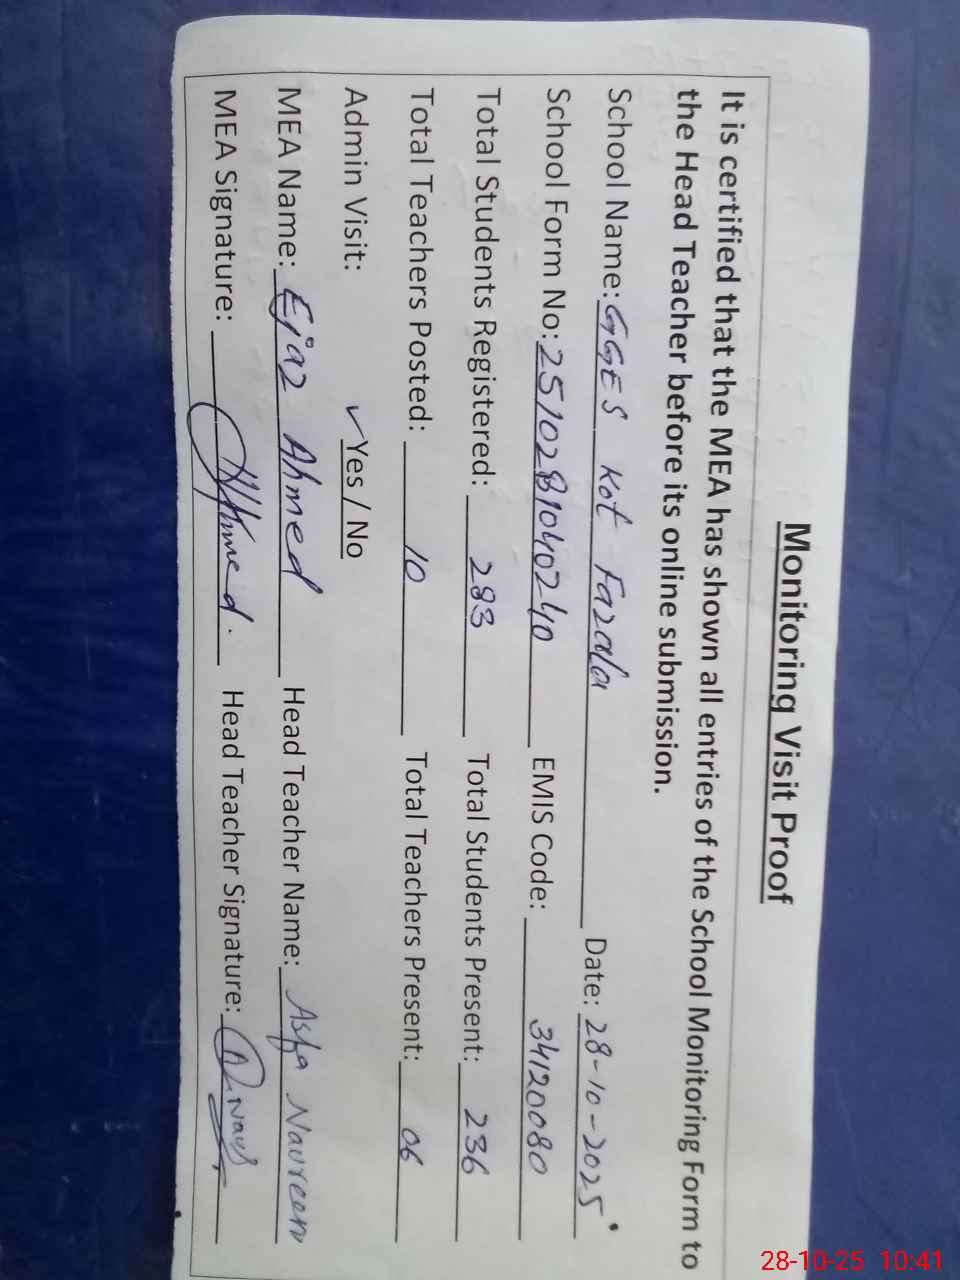 Monitoring Visit Proof
It is certified that the MEA has shown all entries of the School Monitoring Form to
the Head Teacher before its online submission.
School Name: GGES Kot Fazala Date: 28-10-2025
School Form No: 2510281040240 EMIS Code: 34120080
Total Students Registered: 283 Total Students Present: 236
Total Teachers Posted: 10 Total Teachers Present: 06
Admin Visit: ✓Yes / No
MEA Name: Ejaz Ahmed Head Teacher Name: Asfa Naureen
MEA Signature: Ahmed. Head Teacher Signature:
28-10-25 10:41